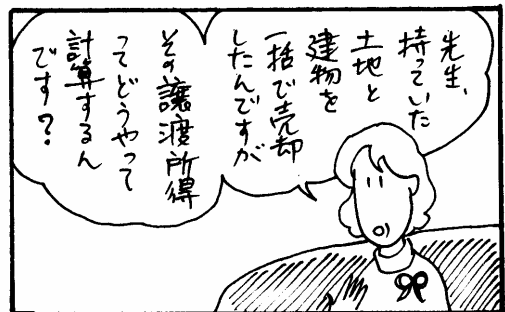 先生、
持っていた
土地と
建物を
一括で売却
したんですが
その譲渡所得
ってどうやって
計算するん
です？